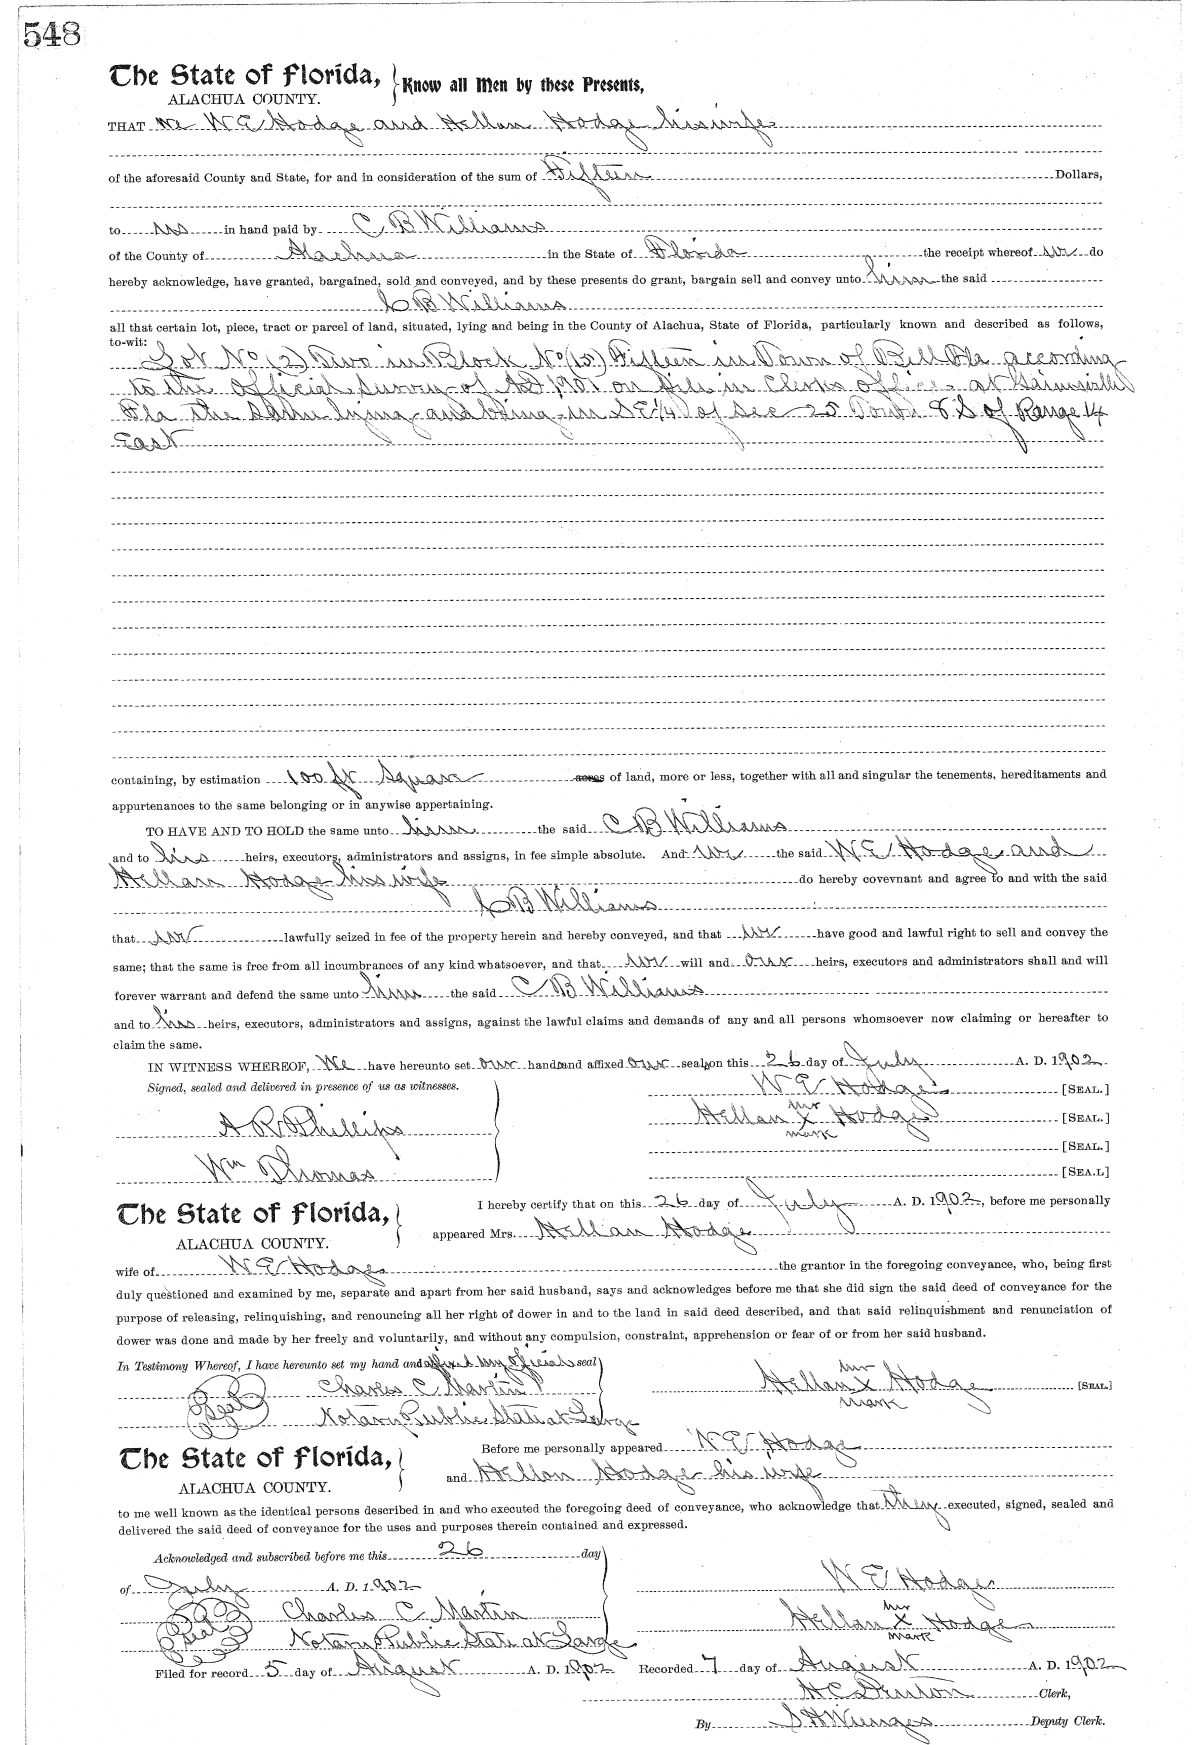 548
The State of Florida,
ALACHUA COUNTY.
Know all Men by these Presents,
THAT we W E Hodge and Hellan Hodge his wife
of the aforesaid County and State, for and in consideration of the sum of Fifteen Dollars,
to us in hand paid by C B Williams
of the County of Alachua in the State of Florida the receipt whereof we do
hereby acknowledge, have granted, bargained, sold and conveyed, and by these presents do grant, bargain sell and convey unto him the said
C B Williams
all that certain lot, piece, tract or parcel of land, situated, lying and being in the County of Alachua, State of Florida, particularly known and described as follows,
to-wit:
Lot No (2) Two in Block No (15) Fifteen in Town of Bell Fla according
to the Official Survey of AD 1901 on file in Clerks office at Gainesville
Fla the same lying and being in SE 1/4 of Sec 25 Town 8 S of Range 14
East
containing, by estimation 100 ft Square acres of land, more or less, together with all and singular the tenements, hereditaments and
appurtenances to the same belonging or in anywise appertaining.
TO HAVE AND TO HOLD the same unto him the said C B Williams
and to his heirs, executors, administrators and assigns, in fee simple absolute. And we the said W E Hodge and
Hellan Hodge his wife do hereby covevnant and agree to and with the said
C B Williams
that we lawfully seized in fee of the property herein and hereby conveyed, and that we have good and lawful right to sell and convey the
same; that the same is free from all incumbrances of any kind whatsoever, and that we will and our heirs, executors and administrators shall and will
forever warrant and defend the same unto him the said C B Williams
and to his heirs, executors, administrators and assigns, against the lawful claims and demands of any and all persons whomsoever now claiming or hereafter to
claim the same.
IN WITNESS WHEREOF, We have hereunto set our hands and affixed our seals on this 26 day of July A. D. 1902
Signed, sealed and delivered in presence of us as witnesses.
W E Hodge [SEAL.]
Hellan her x mark Hodge [SEAL.]
A R Phillips
[SEAL.]
Wm Thomas
[SEA.L]
The State of Florida,
ALACHUA COUNTY.
I hereby certify that on this 26 day of July A. D. 1902, before me personally
appeared Mrs. Hellan Hodge
wife of W E Hodge the grantor in the foregoing conveyance, who, being first
duly questioned and examined by me, separate and apart from her said husband, says and acknowledges before me that she did sign the said deed of conveyance for the
purpose of releasing, relinquishing, and renouncing all her right of dower in and to the land in said deed described, and that said relinquishment and renunciation of
dower was done and made by her freely and voluntarily, and without any compulsion, constraint, apprehension or fear of or from her said husband.
In Testimony Whereof, I have hereunto set my hand and affixed my official seal
Seal Charles C. Martin
Hellan her x mark Hodge [SEAL]
Notary Public State at Large
The State of Florida,
ALACHUA COUNTY.
Before me personally appeared W E Hodge
and Hellan Hodge his wife
to me well known as the identical persons described in and who executed the foregoing deed of conveyance, who acknowledge that they executed, signed, sealed and
delivered the said deed of conveyance for the uses and purposes therein contained and expressed.
Acknowledged and subscribed before me this 26 day
of July A. D. 1902
W E Hodge
Seal Charles C. Martin
Hellan her x mark Hodge
Notary Public State at Large
Filed for record 5 day of August A. D. 1902 Recorded 7 day of August A. D. 1902
H C Denton Clerk,
By S H Wienges Deputy Clerk.